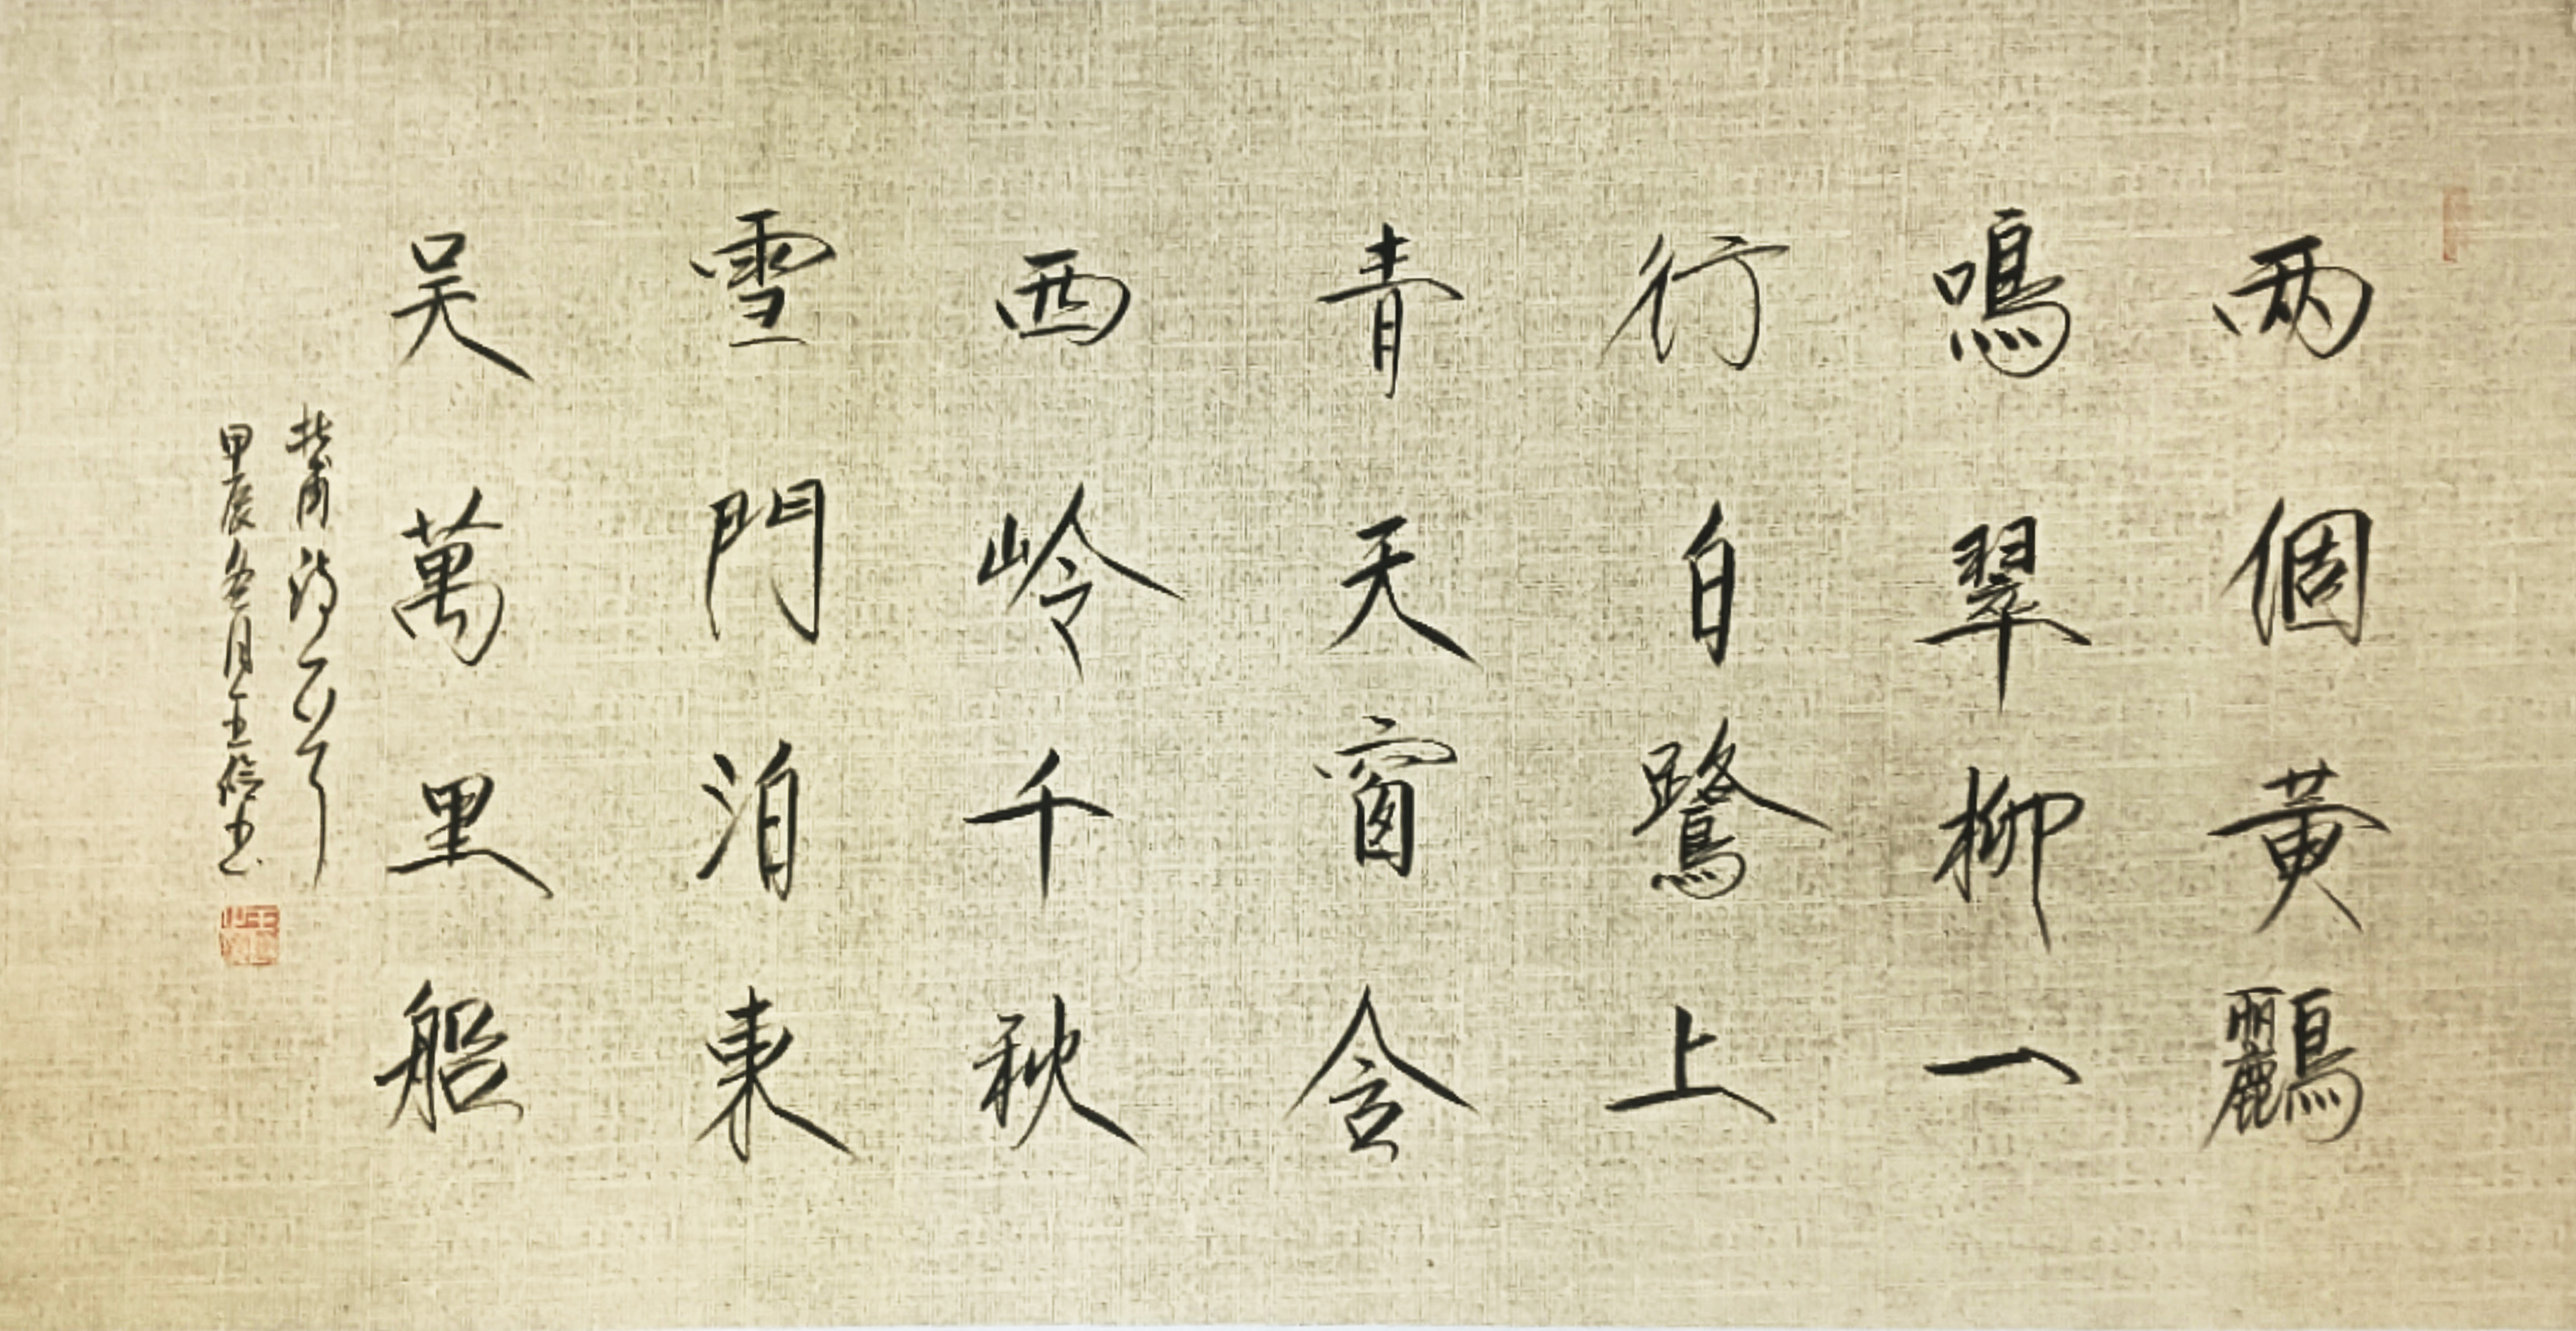 两個黃鸝
鳴翠柳一
行白鷺上
青天窗含
西岭千秋
雪門泊東
吳萬里船
杜甫詩一首
甲辰冬月王